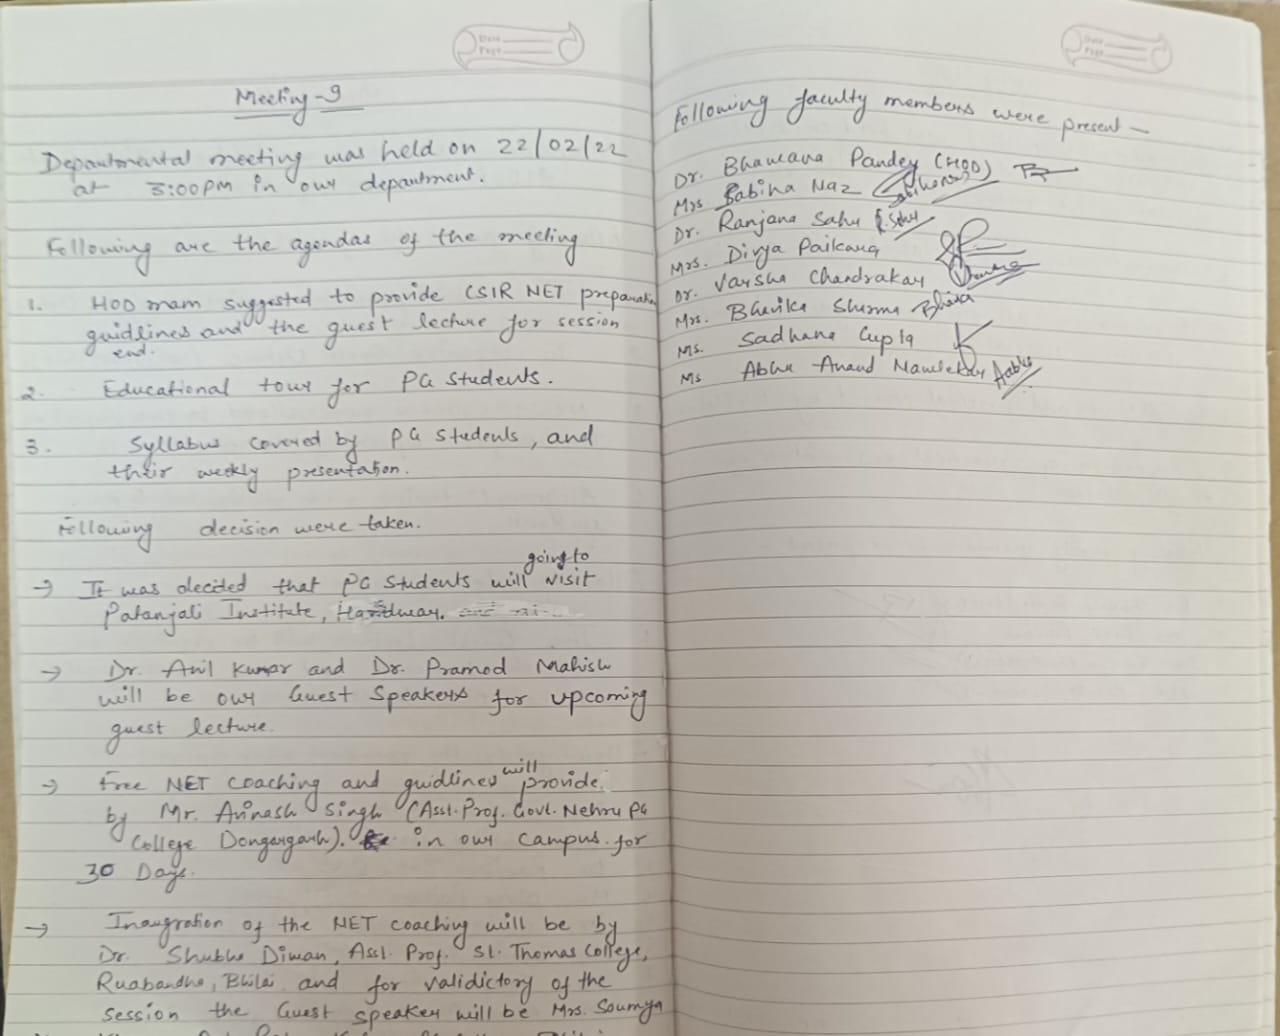 Date
Page
Meeting-9
Departmental meeting was held on 22/02/22
at 3:00PM in our department.
Following are the agendas of the meeting
1. HOD mam suggested to provide CSIR NET preparation
guidlines and the guest lecture for session
end.
2. Educational tour for PG students.
3. Syllabus covered by PG students, and
their weekly presentation.
Following decision were taken.
going to
→ It was decided that PG students will visit
Patanjali Institute, Haridwar.
→ Dr. Anil Kumar and Dr. Pramod Mahish
will be our Guest Speakers for upcoming
guest lecture.
will
→ Free NET coaching and guidlines provide.
by Mr. Avinash Singh (Asst. Prof. Govt. Nehru PG
College Dongargarh). in our campus for
30 Days.
→ Inaugration of the NET coaching will be by
Dr. Shubha Diwan, Asst. Prof. St. Thomas College,
Ruabandha, Bhilai and for validictory of the
session the Guest speaker will be Mrs. Soumya
Date
Page
Following faculty members were present –
Dr. Bhawana Pandey (HOD)
Mrs Sabiha Naz
Dr. Ranjana Sahu R.Sahu
Mrs. Divya Paikara
Dr. Varsha Chandrakar
Mrs. Bhavika Sharma
Ms. Sadhana Gupta
Ms Abha Anand